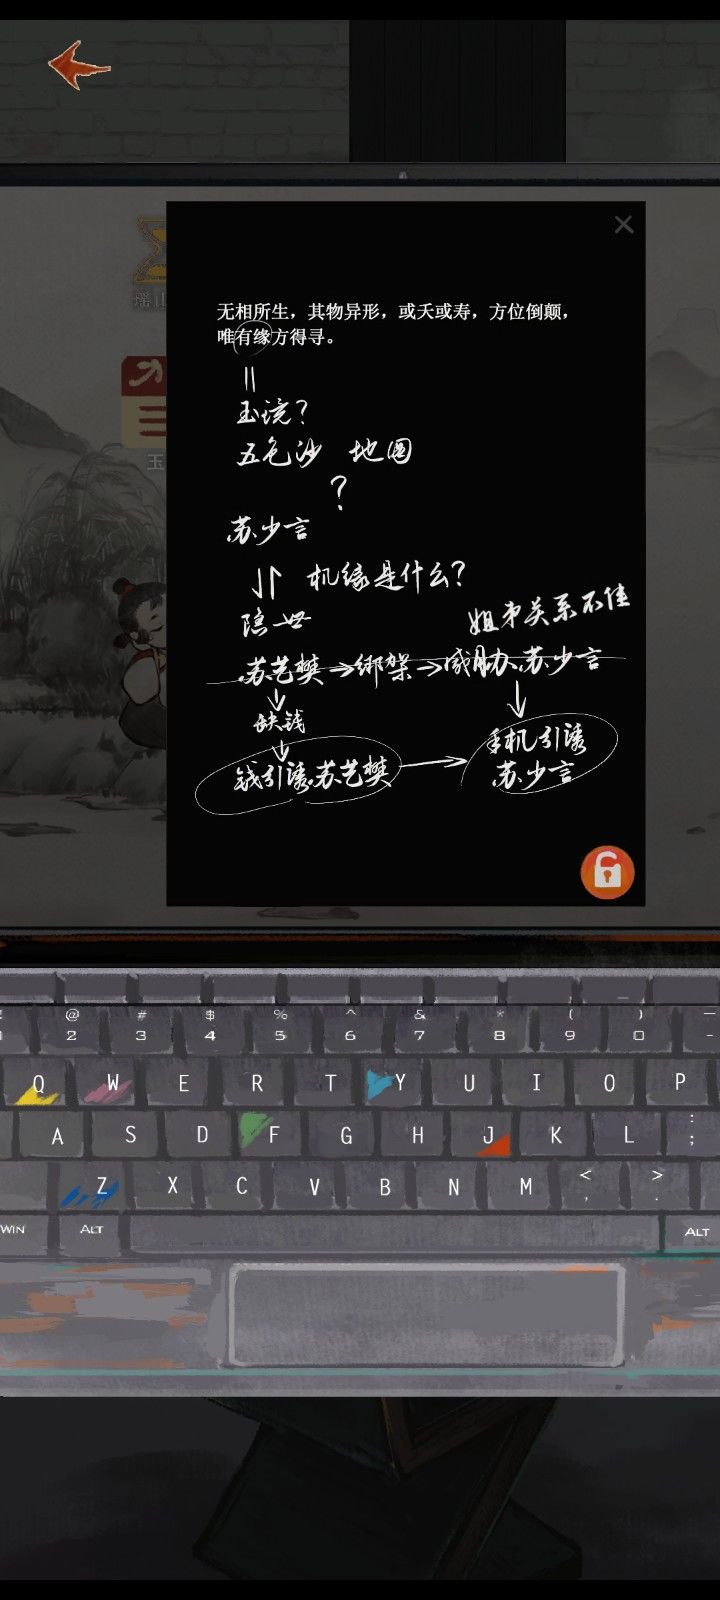 无相所生，其物异形，或夭或寿，方位倒颠，
唯有缘方得寻。
玉境？
五色沙 地图
？
苏少言
机缘是什么？
隐世
姐弟关系不佳
苏艺樊→绑架→威胁苏少言
缺钱
钱引诱苏艺樊→
手机引诱
苏少言
瑶山
玉
@ # $ % ^ & * ( ) —
2 3 4 5 6 7 8 9 0 -
Q W E R T Y U I O P
A S D F G H J K L : ;
Z X C V B N M < , > .
WIN ALT ALT